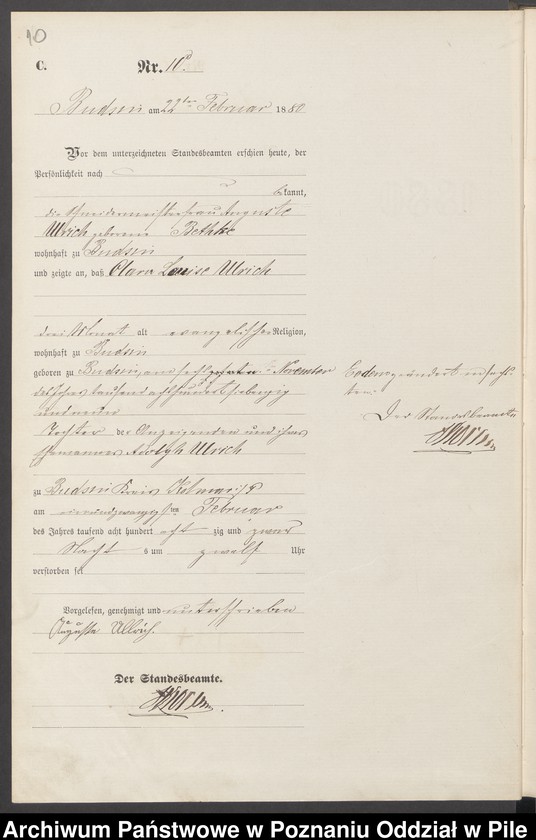 10
C.
Nr. 10.
Budsin am 22ten Februar 1880
Vor dem unterzeichneten Standesbeamten erschien heute, der
Persönlichkeit nach
bekannt,
die Schneidermeisterfrau Auguste
Ulrich geborene Bethke
wohnhaft zu Budsin
und zeigte an, daß Clara Louise Ulrich
drei Monat alt evangelischer Religion,
wohnhaft zu Budsin
geboren zu Budsin am November
des Jahres tausend achthundert siebenzig
und neun
Tochter der Anzeigenden und ihres
Ehemannes Adolph Ulrich
zu Budsin Kreis Kolmar i/P
am einundzwanzigsten Februar
des Jahres tausend acht hundert achtzig und zwar
Nachts um zwölf Uhr
verstorben sei
Vorgelesen, genehmigt und unterschrieben
Auguste Ullrich.
Der Standesbeamte.
geändert
Der Standesbeamte
Archiwum Państwowe w Poznaniu Oddział w Pile